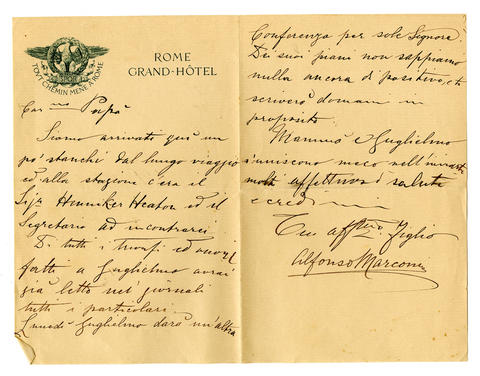 TOUT CHEMIN MÈNE A ROME
ROME
GRAND-HÔTEL
Car.mo Papà
Siamo arrivati quì un
po' stanchi dal lungo viaggio
ed alla stazione c'era il
Sigr Henniker Heaton ed il
Segretario ad incontrarci
Di tutti i trionfi ed onori
fatti a Guglielmo avrai
già letto nei giornali
tutti i particolari.
Lunedì Guglielmo darà un'altra
Conferenza per sole Signore.
Dei suoi piani non sappiamo
nulla ancora di positivo, ti
scriverò domani in
proposito.
Mammà e Guglielmo
s'uniscono meco nell'inviarti
molti affettuosi saluti
e credimi
Tuo affmo Figlio
Alfonso Marconi